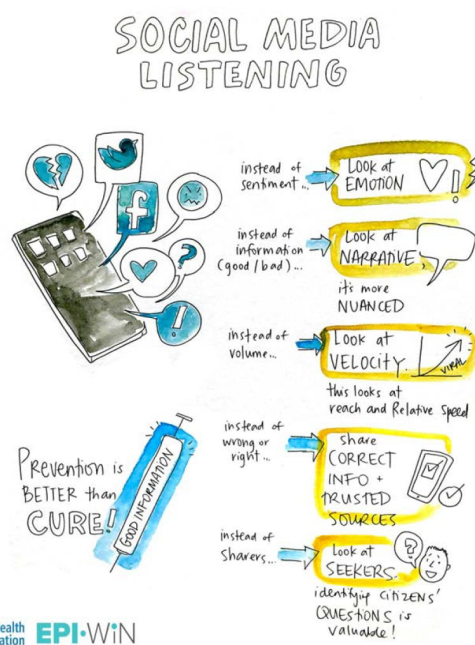 SOCIAL MEDIA
LISTENING
instead of
sentiment...
Look at
EMOTION
!
instead of
information
(good / bad) ...
Look at
NARRATIVE,
it's more
NUANCED
instead of
volume...
Look at
VELOCITY.
VIRAL
this looks at
reach and Relative Speed
instead of
wrong or
right...
Share
CORRECT
INFO +
TRUSTED
SOURCES
instead of
Sharers...
Look at
SEEKERS.
?
identifying CITIZENS'
QUESTIONS is
valuable!
f
?
!
Prevention is
BETTER than
CURE!
GOOD INFORMATION
EPI·WiN